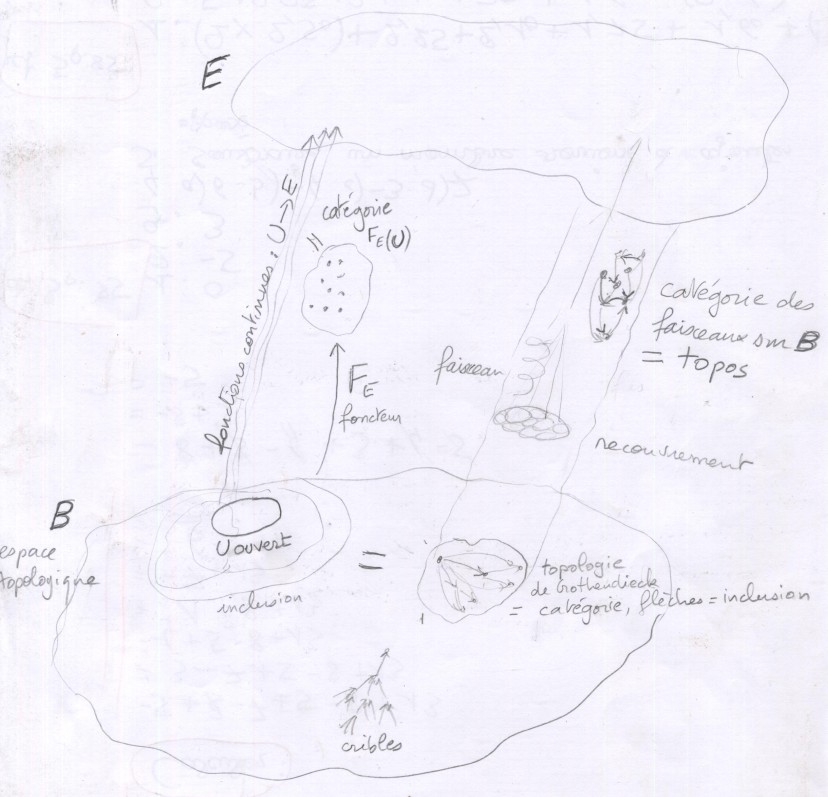 E
fonctions continues : U → E
catégorie
F_E(U)
F_E
foncteur
faisceau
catégorie des
faisceaux sur B
= topos
recouvrement
B
espace
topologique
U ouvert
inclusion
=
topologie
de Grothendieck
= catégorie, flèches = inclusion
cribles